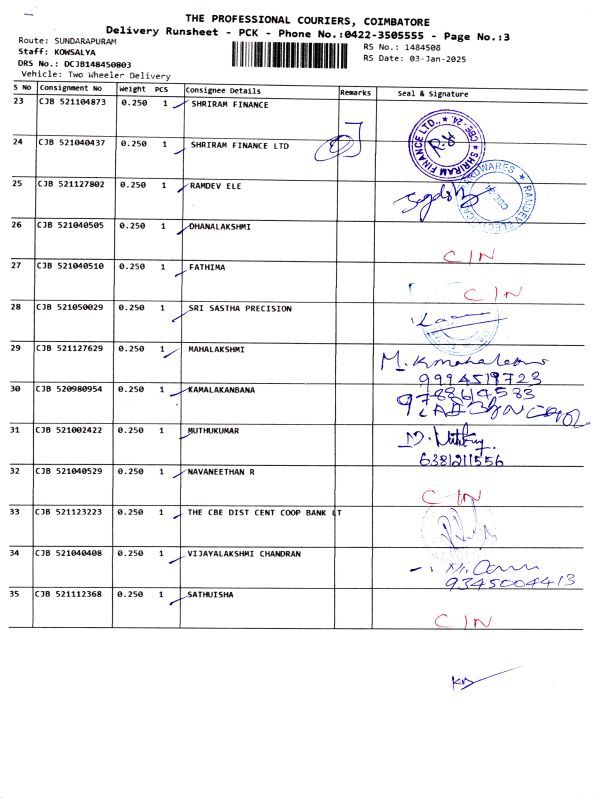 THE PROFESSIONAL COURIERS, COIMBATORE
Delivery Runsheet - PCK - Phone No.:0422-3505555 - Page No.:3
Route: SUNDARAPURAM
RS No.: 1484508
Staff: KOWSALYA
RS Date: 03-Jan-2025
DRS No.: DCJB148450803
Vehicle: Two Wheeler Delivery
S No Consignment No Weight PCS Consignee Details Remarks Seal & Signature
23 CJB 521104873 0.250 1 SHRIRAM FINANCE
24 CJB 521040437 0.250 1 SHRIRAM FINANCE LTD
SHRIRAM FINANCE LTD., CBE - 24.
25 CJB 521127802 0.250 1 RAMDEV ELE
26 CJB 521040505 0.250 1 DHANALAKSHMI C/N
27 CJB 521040510 0.250 1 FATHIMA C/N
28 CJB 521050029 0.250 1 SRI SASTHA PRECISION
29 CJB 521127629 0.250 1 MAHALAKSHMI
9994519723
30 CJB 520980954 0.250 1 KAMALAKANBANA 9788614583
31 CJB 521002422 0.250 1 MUTHUKUMAR
6381211556
32 CJB 521040529 0.250 1 NAVANEETHAN R C-IN
33 CJB 521123223 0.250 1 THE CBE DIST CENT COOP BANK LT
34 CJB 521040408 0.250 1 VIJAYALAKSHMI CHANDRAN
9345004413
35 CJB 521112368 0.250 1 SATHUISHA C/N